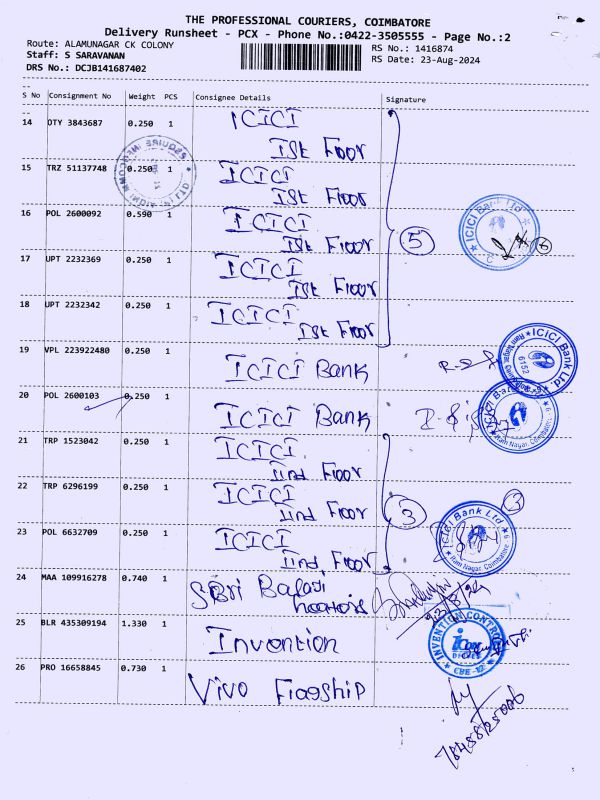 THE PROFESSIONAL COURIERS, COIMBATORE
Delivery Runsheet - PCX - Phone No.:0422-3505555 - Page No.:2
Route: ALAMUNAGAR CK COLONY
Staff: S SARAVANAN
DRS No.: DCJB141687402
RS No.: 1416874
RS Date: 23-Aug-2024
S No Consignment No Weight PCS Consignee Details Signature
14 DTY 3843687 0.250 1 ICICI
Ist Floor
15 TRZ 51137748 0.250 1 ICICI
Ist Floor
16 POL 2600092 0.590 1 ICICI
Ist Floor
17 UPT 2232369 0.250 1 ICICI
Ist Floor
18 UPT 2232342 0.250 1 ICICI
Ist Floor
5
ICICI Bank Ltd
19 VPL 223922480 0.250 1 ICICI Bank
ICICI Bank Ltd
6152
Ram Nagar, Coimbatore
20 POL 2600103 0.250 1 ICICI Bank
ICICI Bank Ltd
Ram Nagar, Coimbatore
21 TRP 1523042 0.250 1 ICICI
IInd Floor
22 TRP 6296199 0.250 1 ICICI
IInd Floor
23 POL 6632709 0.250 1 ICICI
IInd Floor
3
ICICI Bank Ltd
Ram Nagar, Coimbatore - 9
24 MAA 109916278 0.740 1 Sri Balaji
23/8/24
25 BLR 435309194 1.330 1 Invention
INVENTION CONTROL
icon
CBE-12
26 PRO 16658845 0.730 1 Vivo Flagship